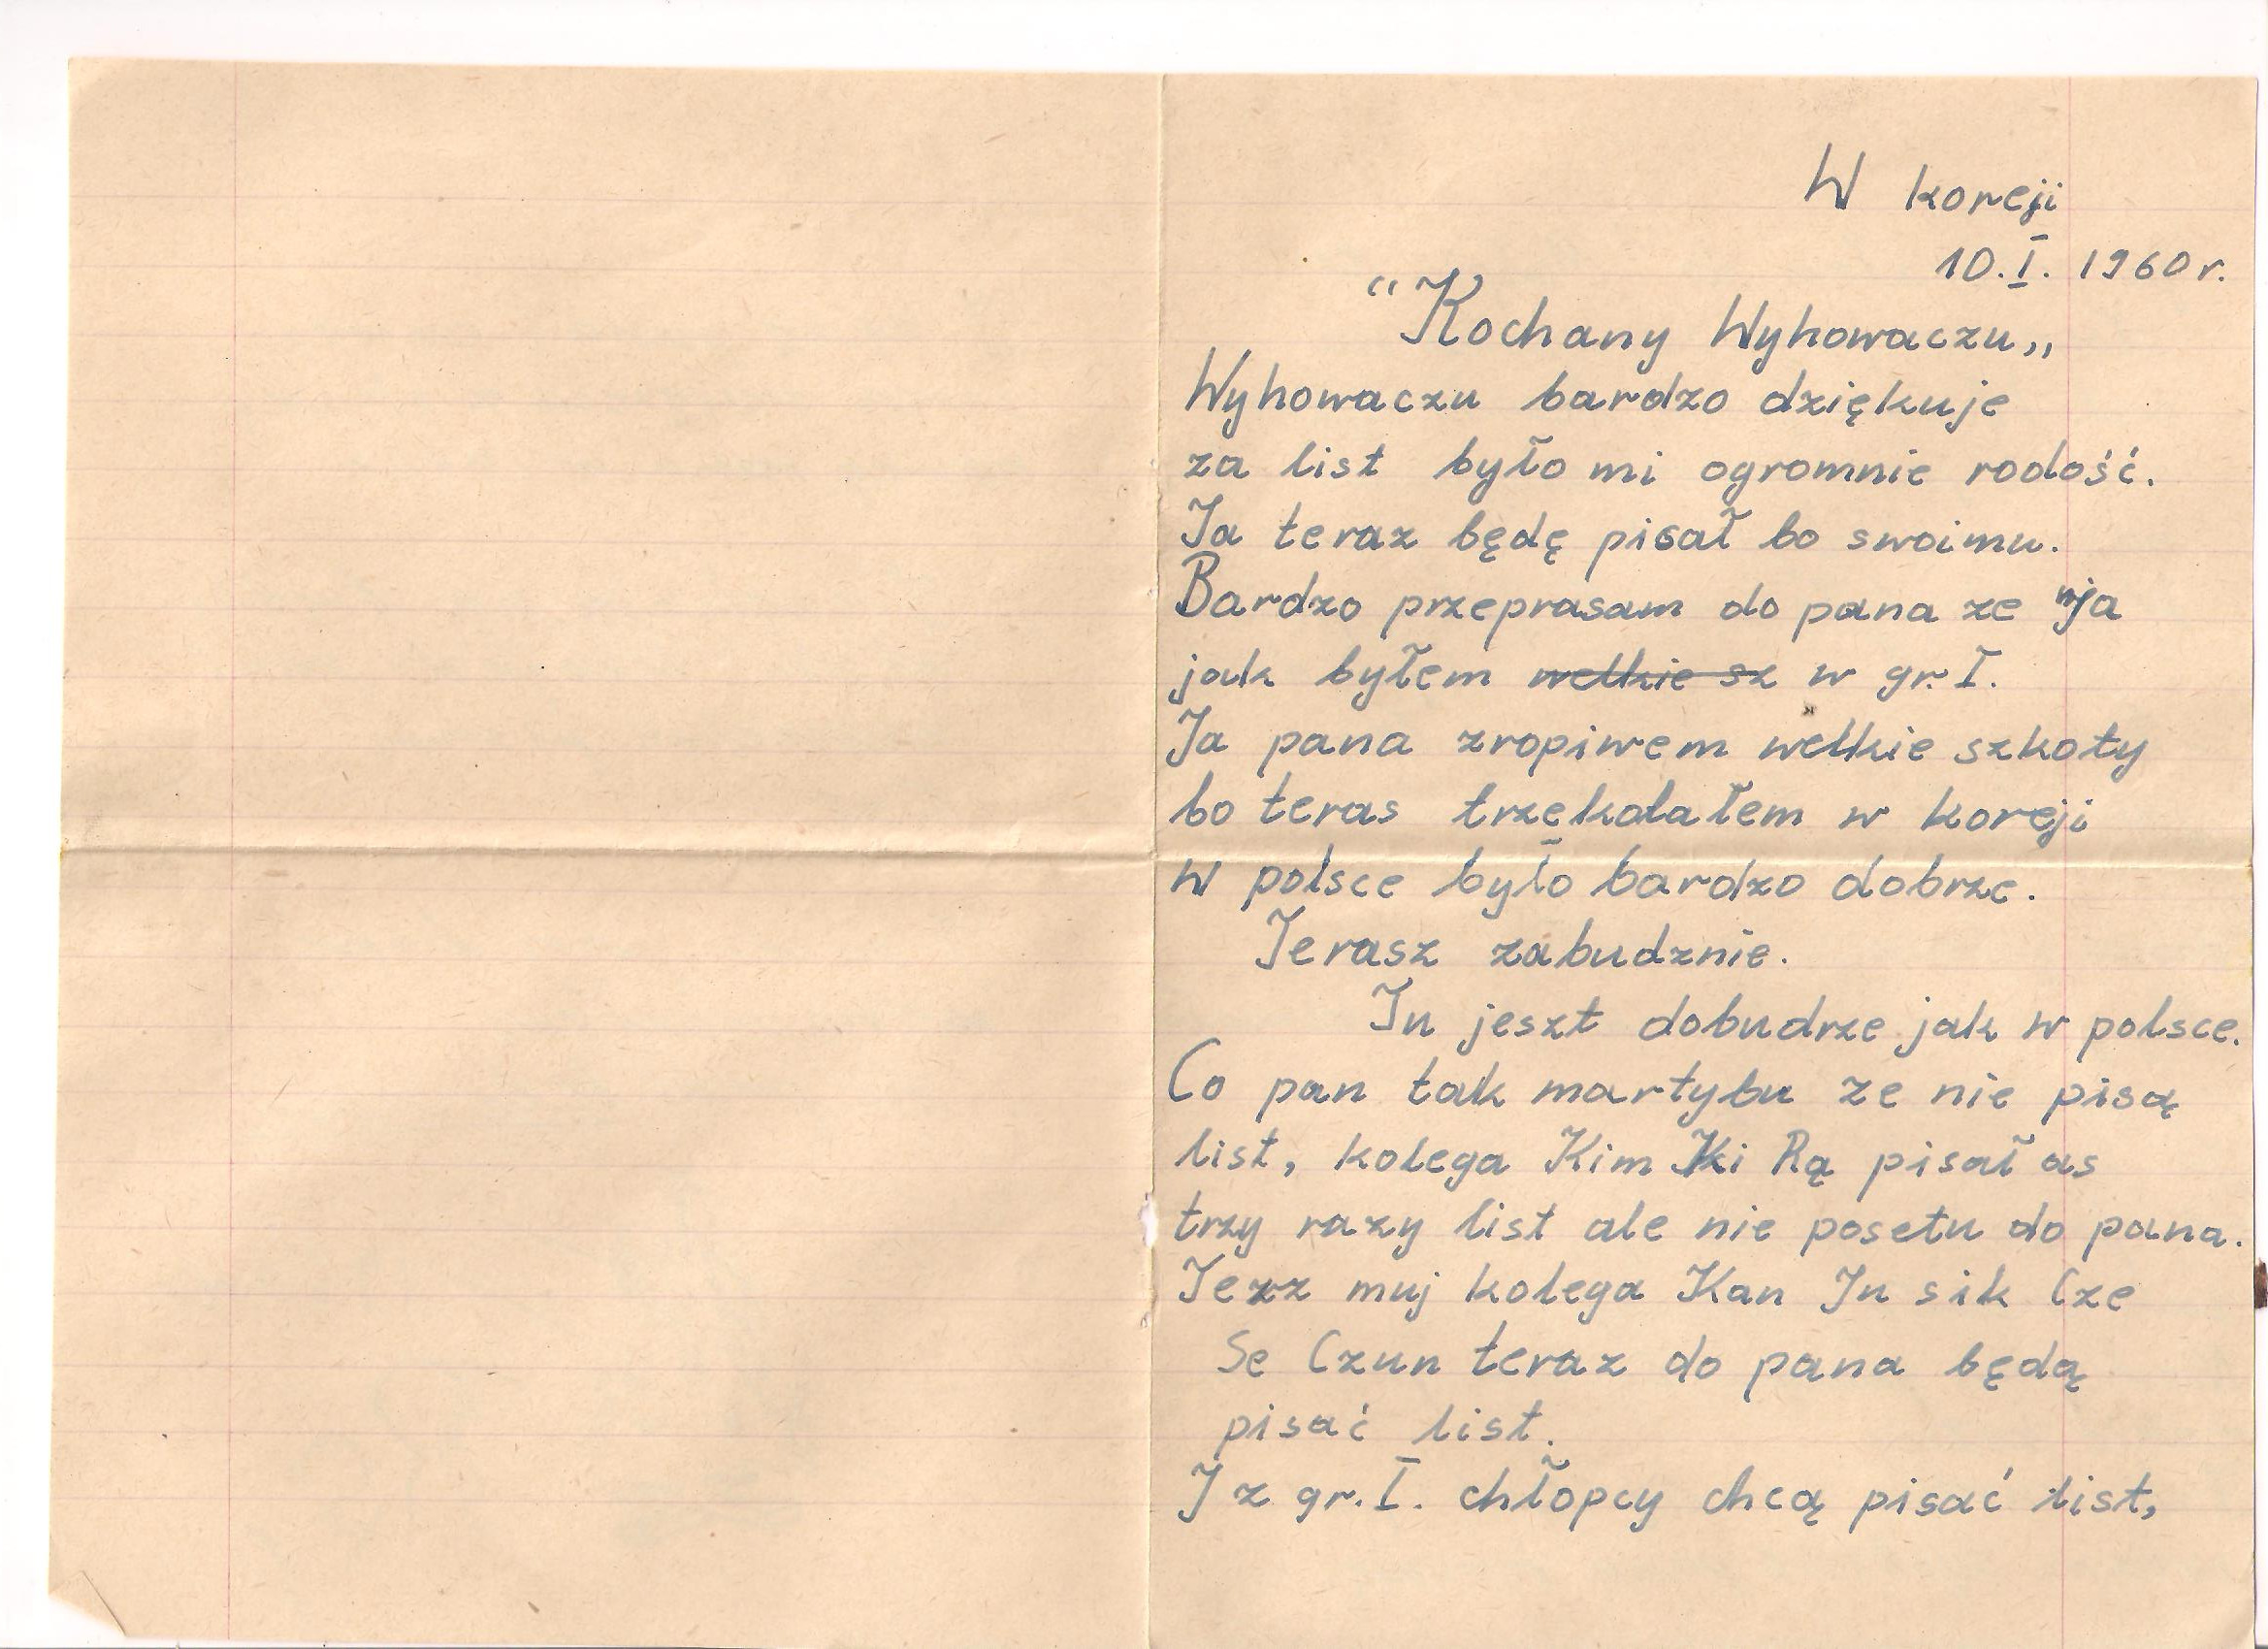 W koreji
10.I. 1960 r.
"Kochany Wyhowaczu„
Wyhowaczu bardzo dziękuje
za list było mi ogromnie rodość.
Ja teraz będę pisał bo swoimu.
Bardzo przeprasam do pana ze "ja
jak byłem welkie sz w gr. I.
Ja pana zropiwem welkie szkoty
bo teras trzękolałem w koreji
w polsce było bardzo dobrze.
Terasz zabudznie.
Tu jeszt dobudrze jak w polsce.
Co pan tak martybu ze nie pisą
list, kolega Kim Ki Rą pisał as
trzy razy list ale nie posetu do pana.
Tezz muj kolega Kan In sik Cze
Se Czun teraz do pana będą
pisać list.
I z gr. I. chłopcy chcą pisać list,